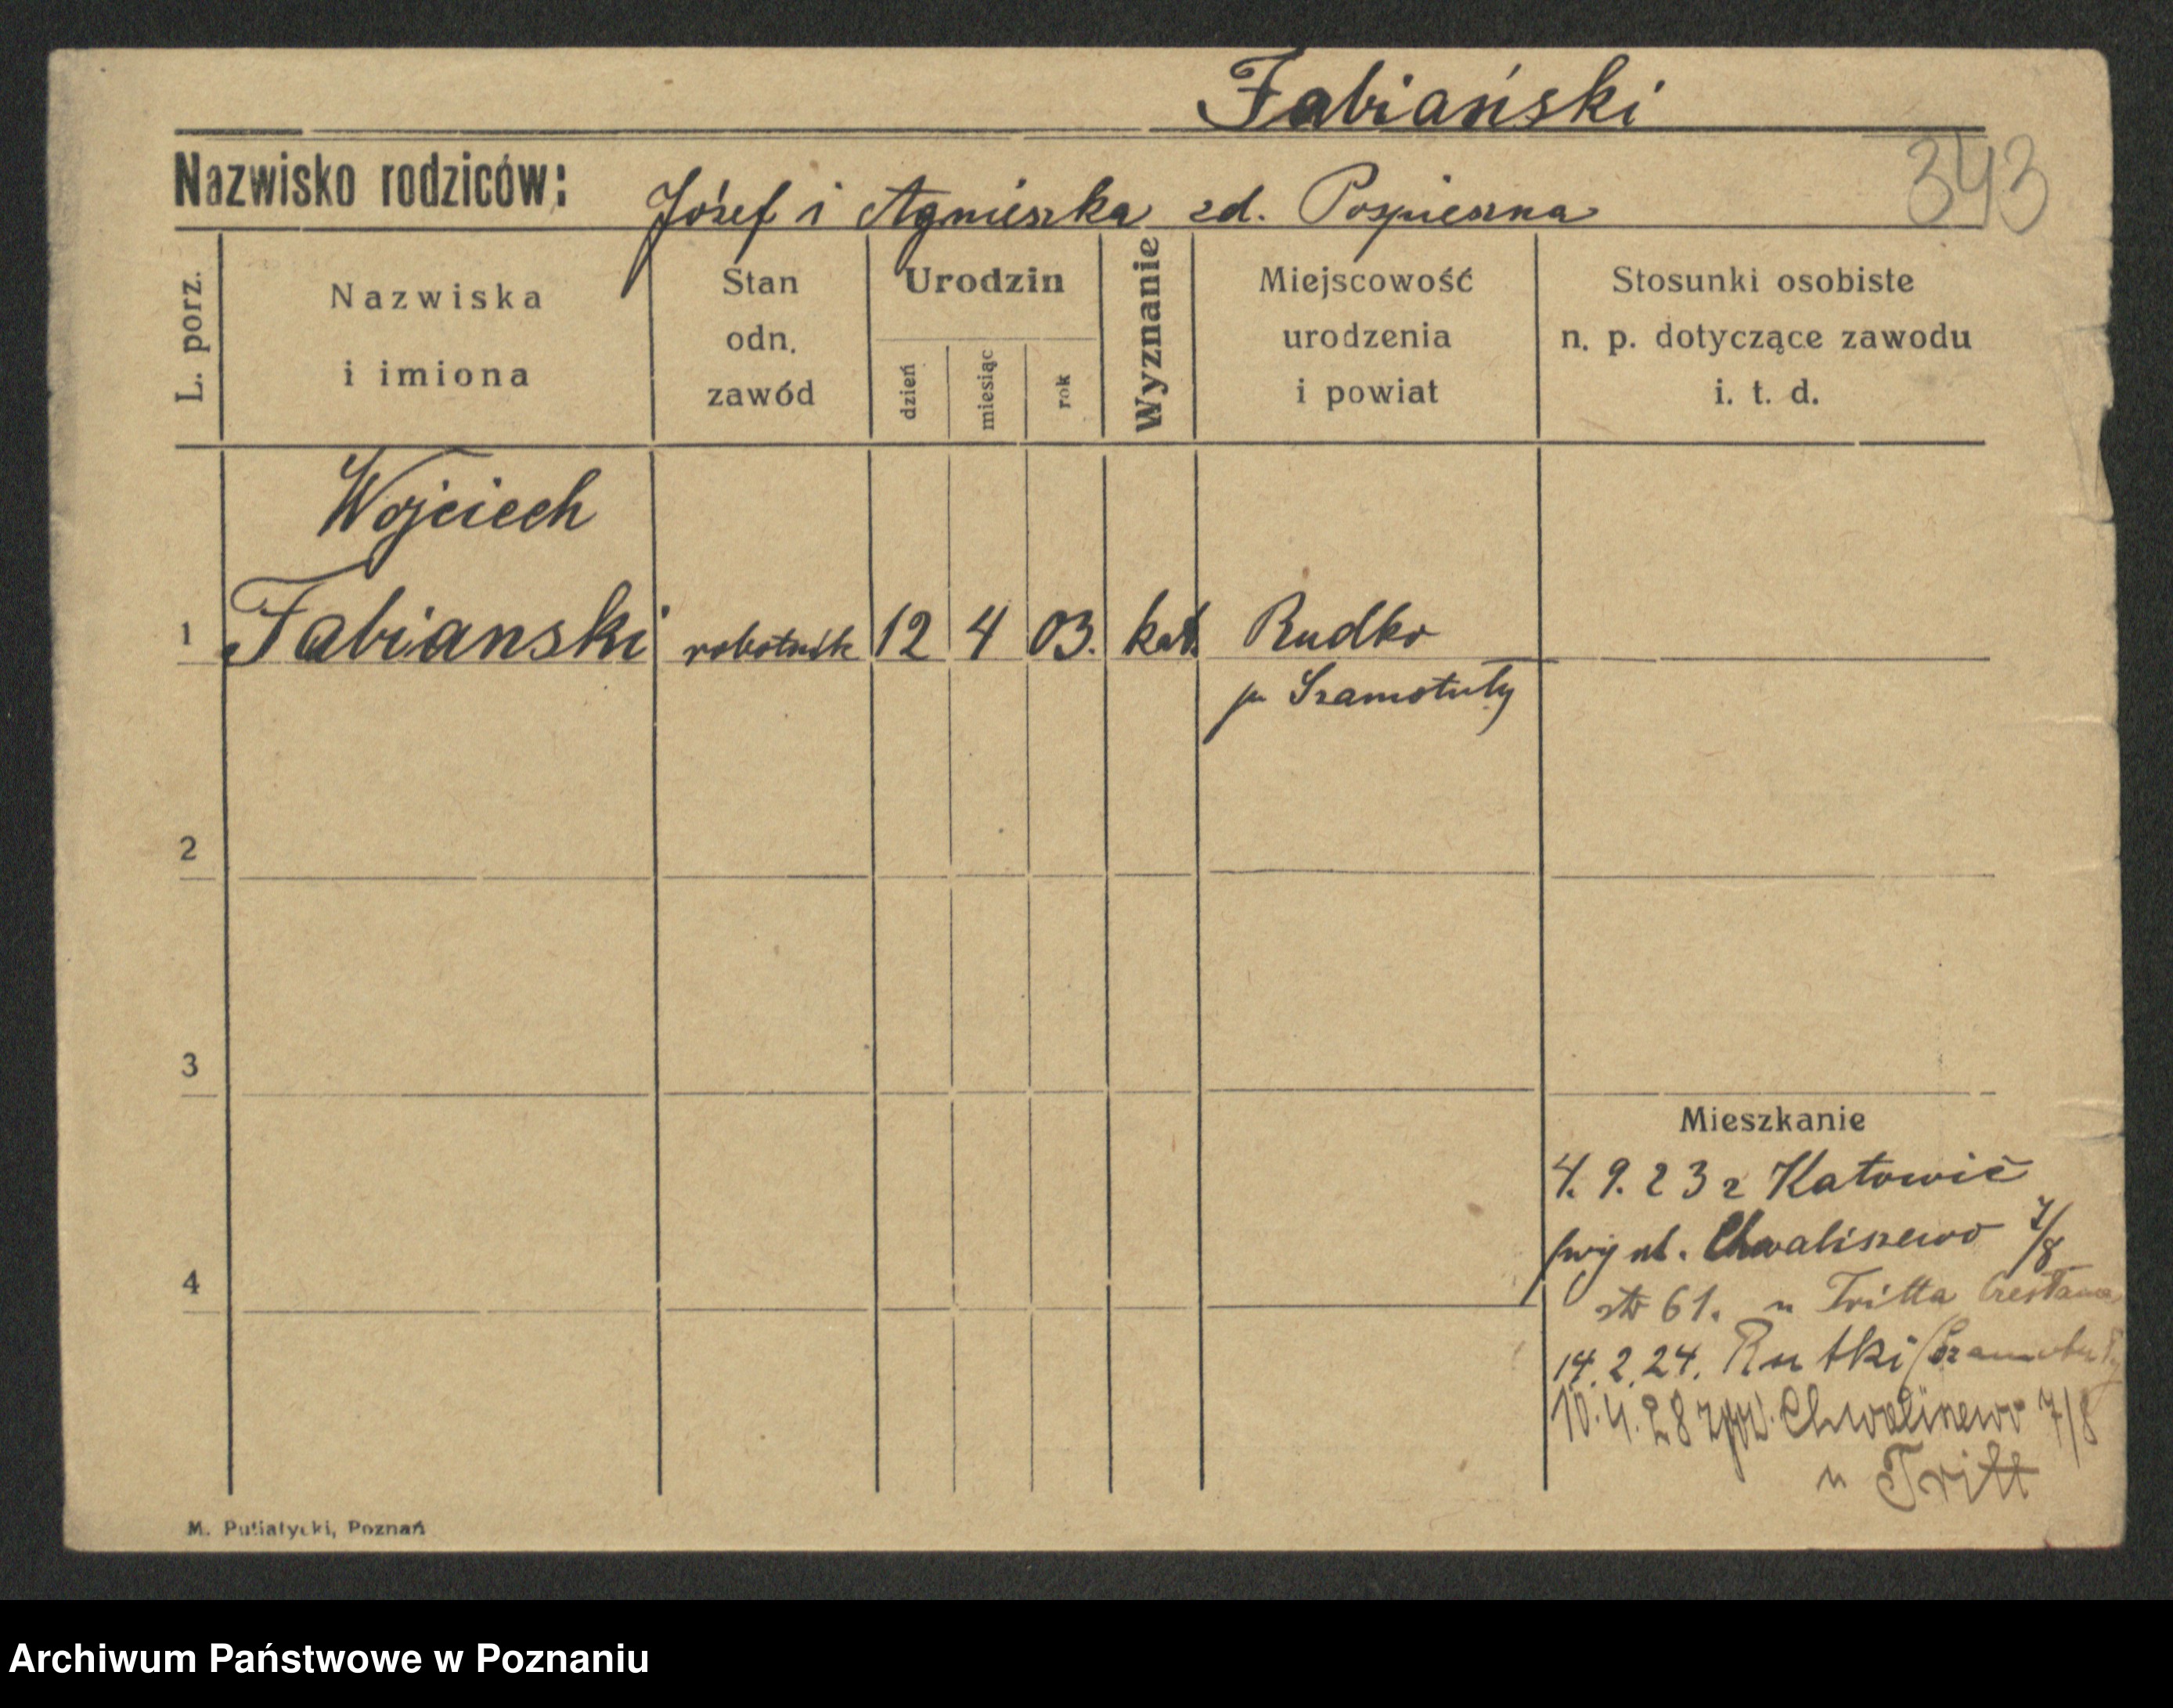 Fabiański
343
Nazwisko rodziców: Józef i Agnieszka zd. Pospieszna
L. porz.
Nazwiska
i imiona
Stan
odn.
zawód
Urodzin
dzień
miesiąc
rok
Wyznanie
Miejscowość
urodzenia
i powiat
Stosunki osobiste
n. p. dotyczące zawodu
i. t. d.
Wojciech
1 Fabianski robotnik 12 4 03. kat. Rudko
p Szamotuły
2
3
4
Mieszkanie
4. 9. 23 z Katowic
ul. Chwaliszewo 7/8
str 61. u Tritta
14. 2. 24. Rutki (Szamotuły
10. 4. 28 zpow. Chwaliszewo 7/8
u Tritt
M. Putiatycki, Poznań
Archiwum Państwowe w Poznaniu